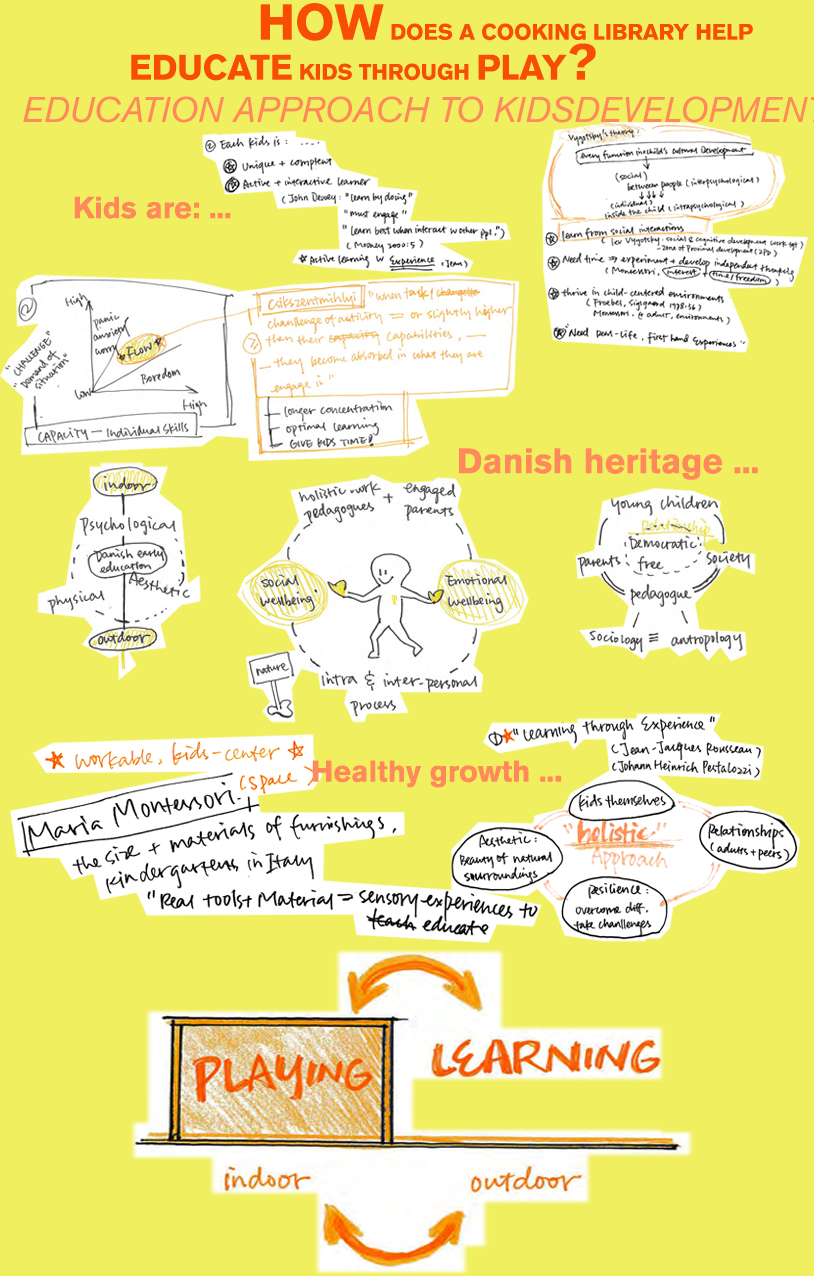 HOW DOES A COOKING LIBRARY HELP
EDUCATE KIDS THROUGH PLAY?
EDUCATION APPROACH TO KIDSDEVELOPMENT
Kids are: ...
② Each kids is : .....
Unique + compteent
Active + interactive learner
(John Dewey: "learn by doing"
"must engage"
"learn best when interact w other ppl,")
(Mooney 2000:5)
Active learning w Experience
Vygotsby's theory:
every function in child's cultural Development
(social)
between people (interpsychological)
(individual)
inside the child (intrapsychological)
learn from social interactions
(lev Vygotsby: social & cognitive development work
- zone of Proximal development (ZPD)
Need time ⇒ experiment + develop independent thinking
(Montessori, interest + time/freedom)
thrive in child-centered environments
(Froebel, Sigsgaard 1978:36)
Montessori, adult, environments)
Need Real-life, first hand Experiences"
②
High
panic
anxiety
worry
FLOW
Boredom
low
High
"CHALLENGE"
"Demand of
situation"
CAPACITY — Individual skills
Csikszentmihlyi "when task/challenge
challenge of activity == or slightly higher
② than their capacity capabilities, —
— they become absorbed in what they are
engage in"
longer concentration
optimal learning
GIVE KIDS TIME!
Danish heritage ...
indoor
Psychological
Danish early
education
Aesthetic
physical
outdoor
holistic work + engaged
pedagogues parents
social
wellbeing
Emotional
wellbeing
nature
intra & inter-personal
process
young children
relationship
Democratic
free
parents
society
pedagogue
sociology ≡ antropology
workable, kids-center
(space)
Healthy growth ...
① "Learning through Experience"
(Jean-Jacques Rousseau)
(Johann Heinrich Pestalozzi)
Maria Montersori:
the size + materials of furnishings,
kindergartens in Italy
"Real tools + Material = sensory-experiences to
teach educate
kids themselves
"holistic"
Approach
Aesthetic:
Beauty of natural
sourroundings
Relationships
(adults + peers)
Resilience:
overcome diff.
take chanllenges
PLAYING
LEARNING
indoor
outdoor